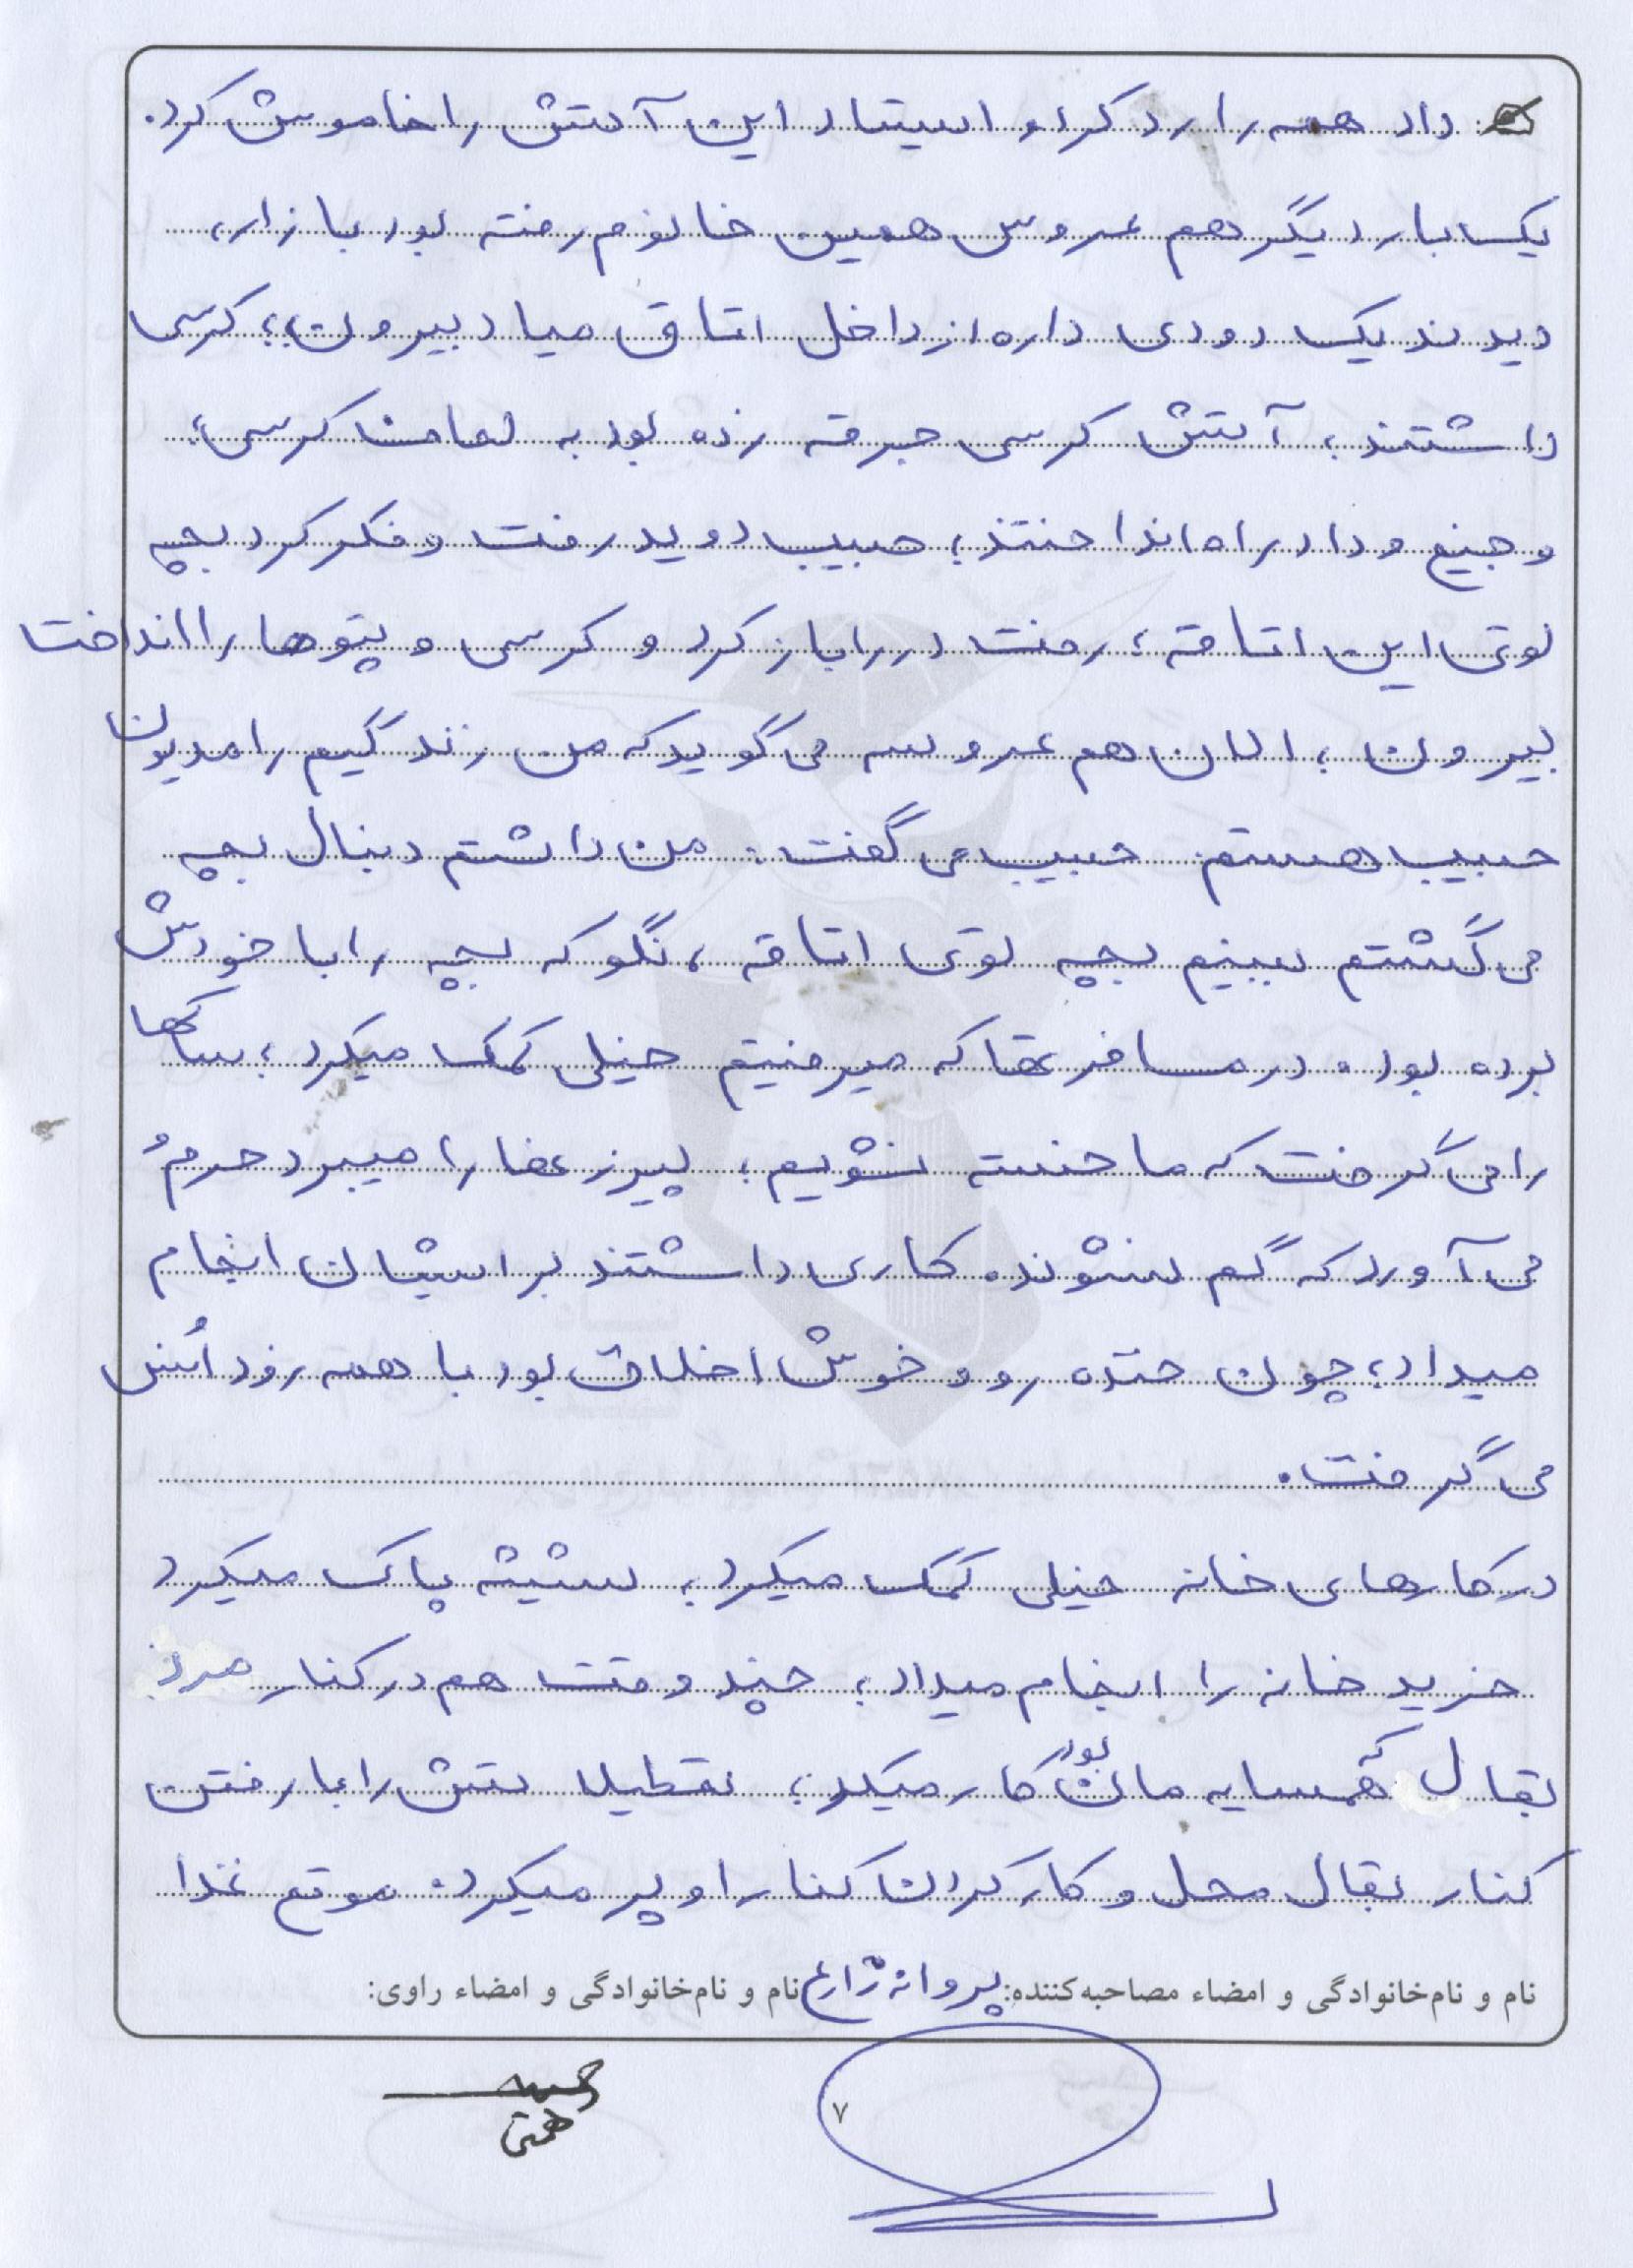 داد همه را رد کرد و ایستاد این آتش را خاموش کرد.
یک بار دیگر هم عروس همین خانوم رفته بود بازار،
دیدند یک دودی داره از داخل اتاق میاد بیرون؛ کرسی
داشتند، آتش کرسی جرقه زده بود به لحاف کرسی؛
و جیغ و داد راه انداختند؛ حبیب دوید رفت و فکر کرد بچه
توی این اتاقه، رفت در را باز کرد و کرسی و پتوها را انداخت
بیرون؛ الان هم عروسه می‌گوید که من زندگیم را مدیون
حبیب هستم. حبیب می‌گفت: من داشتم دنبال بچه
می‌گشتم ببینم بچه توی اتاقه، نگو که بچه را با خودش
برده بود. در مسافرتها که میرفتیم خیلی کمک میکرد؛ ساکها
را می‌گرفت که ما خسته نشویم؛ پیرزنها را میبرد حرم و
می‌آورد که گم نشوند. کاری داشتند برایشان انجام
میداد؛ چون خنده رو و خوش اخلاق بود با همه زود اُنس
می‌گرفت.
در کارهای خانه خیلی کمک میکرد؛ شیشه پاک میکرد
خرید خانه را انجام میداد؛ چند وقت هم در کنار مرد
بقال که همسایه مان بود کار میکرد؛ تعطیلاتش را با رفتن
کنار بقال محل و کار کردن کنار او پر میکرد. موقع غذا
نام و نام‌خانوادگی و امضاء مصاحبه‌کننده: پروانه زارع نام و نام‌خانوادگی و امضاء راوی:
۷